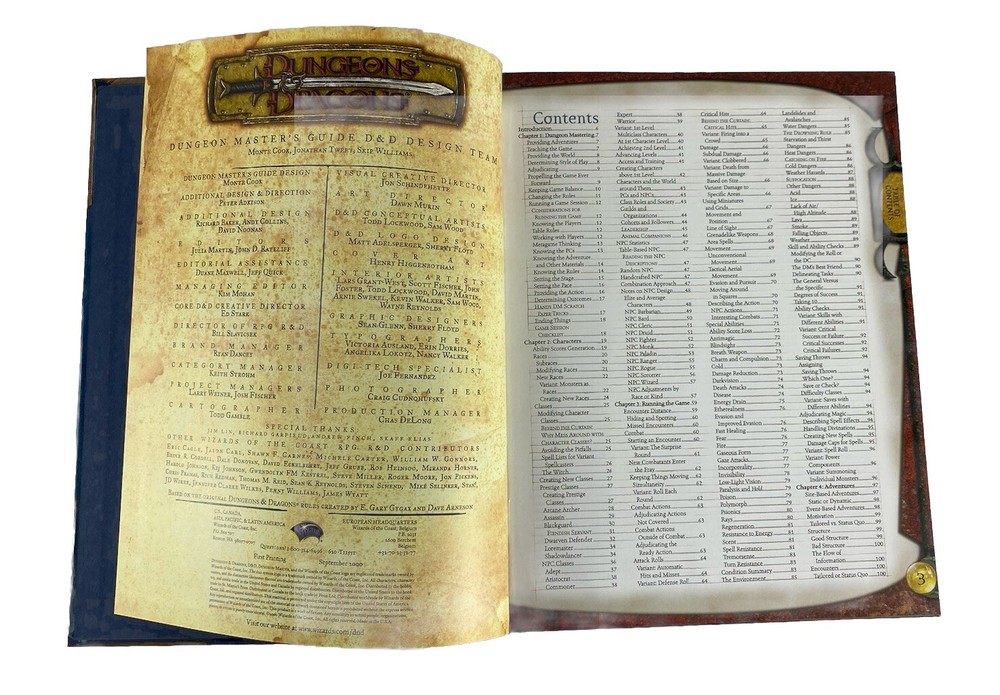 DUNGEONS
DRAGONS
DUNGEON MASTER'S GUIDE, D&D DESIGN TEAM
MONTE COOK, JONATHAN TWEET, SKIP WILLIAMS
DUNGEON MASTER'S GUIDE DESIGN
MONTE COOK
ADDITIONAL DESIGN & DIRECTION
PETER ADKISON
ADDITIONAL DESIGN
RICHARD BAKER, ANDY COLLINS,
DAVID NOONAN
EDITORS
JULIA MARTIN, JOHN D. RATELIFF
EDITORIAL ASSISTANCE
DUANE MAXWELL, JEFF QUICK
MANAGING EDITOR
KIM MOHAN
CORE D&D CREATIVE DIRECTOR
ED STARK
DIRECTOR OF RPG R&D
BILL SLAVICSEK
BRAND MANAGER
RYAN DANCEY
CATEGORY MANAGER
KEITH STROHM
PROJECT MANAGERS
LARRY WEINER, JOSH FISCHER
CARTOGRAPHER
TODD GAMBLE
VISUAL CREATIVE DIRECTOR
JON SCHINDEHETTE
ART DIRECTOR
DAWN MURIN
D&D CONCEPTUAL ARTISTS
TODD LOCKWOOD, SAM WOOD
D&D LOGO DESIGN
MATT ADELSPERGER, SHERRY FLOYD
COVER ART
HENRY HIGGENBOTHAM
INTERIOR ARTISTS
LARS GRANT-WEST, SCOTT FISCHER, JOHN
FOSTER, TODD LOCKWOOD, DAVID MARTIN,
ARNIE SWEKEL, KEVIN WALKER, SAM WOOD,
WAYNE REYNOLDS
GRAPHIC DESIGNERS
SEAN GLENN, SHERRY FLOYD
TYPOGRAPHERS
VICTORIA AUSLAND, ERIN DORRIES,
ANGELIKA LOKOTZ, NANCY WALKER
DIGI-TECH SPECIALIST
JOE FERNANDEZ
PHOTOGRAPHER
CRAIG CUDNOHUFSKY
PRODUCTION MANAGER
CHAS DELONG
SPECIAL THANKS:
JIM LIN, RICHARD GARFIELD, ANDREW FINCH, SKAFF ELIAS
OTHER WIZARDS OF THE COAST RPG R&D CONTRIBUTORS
ERIC CAGLE, JASON CARL, SHAWN F. CARNES, MICHELE CARTER, WILLIAM W. CONNORS,
BRUCE R. CORDELL, DALE DONOVAN, DAVID ECKELBERRY, JEFF GRUBB, ROB HEINSOO, MIRANDA HORNER,
HAROLD JOHNSON, KIJ JOHNSON, GWENDOLYN FM KESTREL, STEVE MILLER, ROGER MOORE, JON PICKENS,
CHRIS PRAMAS, RICH REDMAN, THOMAS M. REID, SEAN K REYNOLDS, STEVEN SCHEND, MIKE SELINKER, STAN!,
JD WIKER, JENNIFER CLARKE WILKES, PENNY WILLIAMS, JAMES WYATT
BASED ON THE ORIGINAL DUNGEONS & DRAGONS® RULES CREATED BY E. GARY GYGAX AND DAVE ARNESON
U.S., CANADA,
ASIA, PACIFIC, & LATIN AMERICA
Wizards of the Coast, Inc.
EUROPEAN HEADQUARTERS
Wizards of the Coast, Belgium
P.B. 2031
2600 Berchem
Belgium
First Printing
September 2000
Visit our website at www.wizards.com/dnd
Contents
Introduction 6
Chapter 1: Dungeon Mastering 7
Providing Adventures 7
Teaching the Game 7
Providing the World 8
Determining Style of Play 8
Adjudicating
Propelling the Game Ever
Forward 9
Keeping Game Balance 10
Changing the Rules 11
Running a Game Session 12
CONSIDERATIONS FOR
RUNNING THE GAME 12
Table Rules 12
Working with Players 12
Metagame Thinking 13
Knowing the PCs 13
Knowing the Adventure
and Other Materials 14
Knowing the Rules 14
Setting the Stage 15
Setting the Pace 16
Providing the Action 16
Determining Outcomes 17
HANDY DM SCRATCH
PAPER TRICKS 17
Ending Things 18
GAME SESSION
CHECKLIST 18
Chapter 2: Characters 19
Ability Scores Generation 19
Races 20
Subraces 20
Modifying Races 21
New Races 22
Variant: Monsters as
Races 22
Creating New Races 24
Classes 25
Modifying Character
Classes 25
BEHIND THE CURTAIN:
WHY MESS AROUND WITH
CHARACTER CLASSES? 25
Avoiding the Pitfalls
Spell Lists for Variant
Spellcasters 26
The Witch 26
Creating New Classes 27
Prestige Classes 27
Creating Prestige
Classes 27
Arcane Archer 28
Assassin
Blackguard
FIENDISH SERVANT 31
Dwarven Defender 32
Loremaster 34
Shadowdancer
NPC Classes 36
Adept 37
Aristocrat
Commoner 38
Expert 38
Warrior 39
Variant: 1st-Level
Multiclass Characters 40
At 1st Character Level 40
Achieving 2nd Level 41
Advancing Levels 41
Access and Training 41
Creating Characters
above 1st Level 42
Characters and the World
around Them 45
PCs and NPCs 45
Class Roles and Society
Guilds and
Organizations 44
Cohorts and Followers 44
LEADERSHIP 45
ANIMAL COMPANIONS 46
NPC Statistics 47
Table-Based NPC 47
READING THE NPC
DESCRIPTIONS 47
Random NPC 47
Handcrafted NPC 47
Combination Approach 47
Notes on NPC Design
Elite and Average
Characters 48
NPC Barbarian 49
NPC Bard 50
NPC Cleric 51
NPC Druid 51
NPC Fighter 52
NPC Monk 52
NPC Paladin 53
NPC Ranger 55
NPC Rogue 55
NPC Sorcerer 56
NPC Wizard 57
NPC Adjustments by
Race or Kind 57
Chapter 3: Running the Game 59
Encounter Distance 59
Hailing and Spotting 60
Missed Encounters 60
Combat 60
Starting an Encounter 60
Variant: The Surprise
Round 61
New Combatants Enter
the Fray 62
Keeping Things Moving 62
Simultaneity 62
Variant: Roll Each
Round 62
Combat Actions 63
Adjudicating Actions
Not Covered 63
Combat Actions
Outside of Combat 63
Adjudicating the
Ready Action 63
Attack Rolls 64
Variant: Automatic
Hits and Misses 64
Variant: Defense Roll 64
Critical Hits 64
BEHIND THE CURTAIN:
CRITICAL HITS 65
Variant: Firing into a
Crowd 65
Damage 66
Subdual Damage 66
Variant: Clobbered 66
Variant: Death from
Massive Damage
Based on Size 66
Variant: Damage to
Specific Areas 66
Using Miniatures
and Grids 67
Movement and
Position 67
Line of Sight 67
Grenadelike Weapons 68
Area Spells 68
Movement 69
Unconventional
Movement 69
Tactical Aerial
Movement 69
Evasion and Pursuit 70
Moving Around
in Squares 70
Describing the Action 70
NPC Actions 71
Interesting Combats 71
Special Abilities 71
Ability Score Loss 72
Antimagic 72
Blindsight 73
Breath Weapon 73
Charm and Compulsion 73
Cold 73
Damage Reduction 73
Darkvision 74
Death Attacks 74
Disease 74
Energy Drain 75
Etherealness 76
Evasion and
Improved Evasion 76
Fast Healing 76
Fear 76
Fire
Gaseous Form 77
Gaze Attacks 77
Incorporeality 77
Invisibility 78
Low-Light Vision 79
Paralysis and Hold 79
Poison 79
Polymorph 79
Psionics 80
Rays 80
Regeneration 81
Resistance to Energy 81
Scent 81
Spell Resistance 81
Tremorsense 81
Turn Resistance 81
Condition Summary 83
The Environment 85
Landslides and
Avalanches 85
Water Dangers 85
THE DROWNING RULE 85
Starvation and Thirst
Dangers 86
Heat Dangers 86
CATCHING ON FIRE 86
Cold Dangers 86
Weather Hazards 87
SUFFOCATION 88
Other Dangers 88
Acid 88
Ice
Lack of Air/
High Altitude 88
Lava 88
Smoke
Falling Objects 89
Weather 89
Skill and Ability Checks 89
Modifying the Roll or
the DC 90
The DM's Best Friend 90
Delineating Tasks 90
The General Versus
the Specific 91
Degrees of Success 91
Taking 10 91
Ability Checks 91
Variant: Skills with
Different Abilities 91
Variant: Critical
Success or Failure 92
Critical Successes 92
Critical Failures 92
Saving Throws 94
Assigning
Saving Throws 94
Which One? 94
Save or Check? 94
Difficulty Classes 94
Variant: Saves with
Different Abilities 94
Adjudicating Magic 94
Describing Spell Effects 94
Handling Divinations 95
Creating New Spells 95
Damage Caps for Spells 95
Variant: Spell Roll 96
Variant: Power
Components 96
Variant: Summoning
Individual Monsters 96
Chapter 4: Adventures 97
Site-Based Adventures 97
Event-Based Adventures 98
Motivation 99
Tailored vs. Status Quo 99
Structure 99
Good Structure 99
Bad Structure 100
The Flow of
Information 100
Encounters 100
Tailored or Status Quo 100
TABLE OF
CONTENTS
3